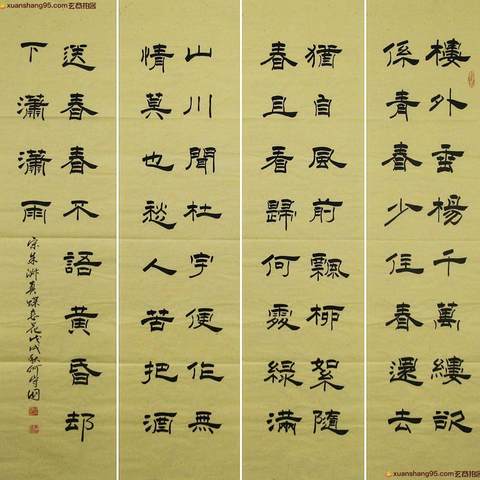 xuanshang95.com
樓外垂楊千萬縷欲
係青春少住春還去
猶自風前飄柳絮隨
春且看歸何處綠滿
山川聞杜宇便作無
情莫也愁人苦把酒
送春春不語黃昏却
下瀟瀟雨
宋朱淑真蝶恋花戊戌秋何守
xuanshang95.com